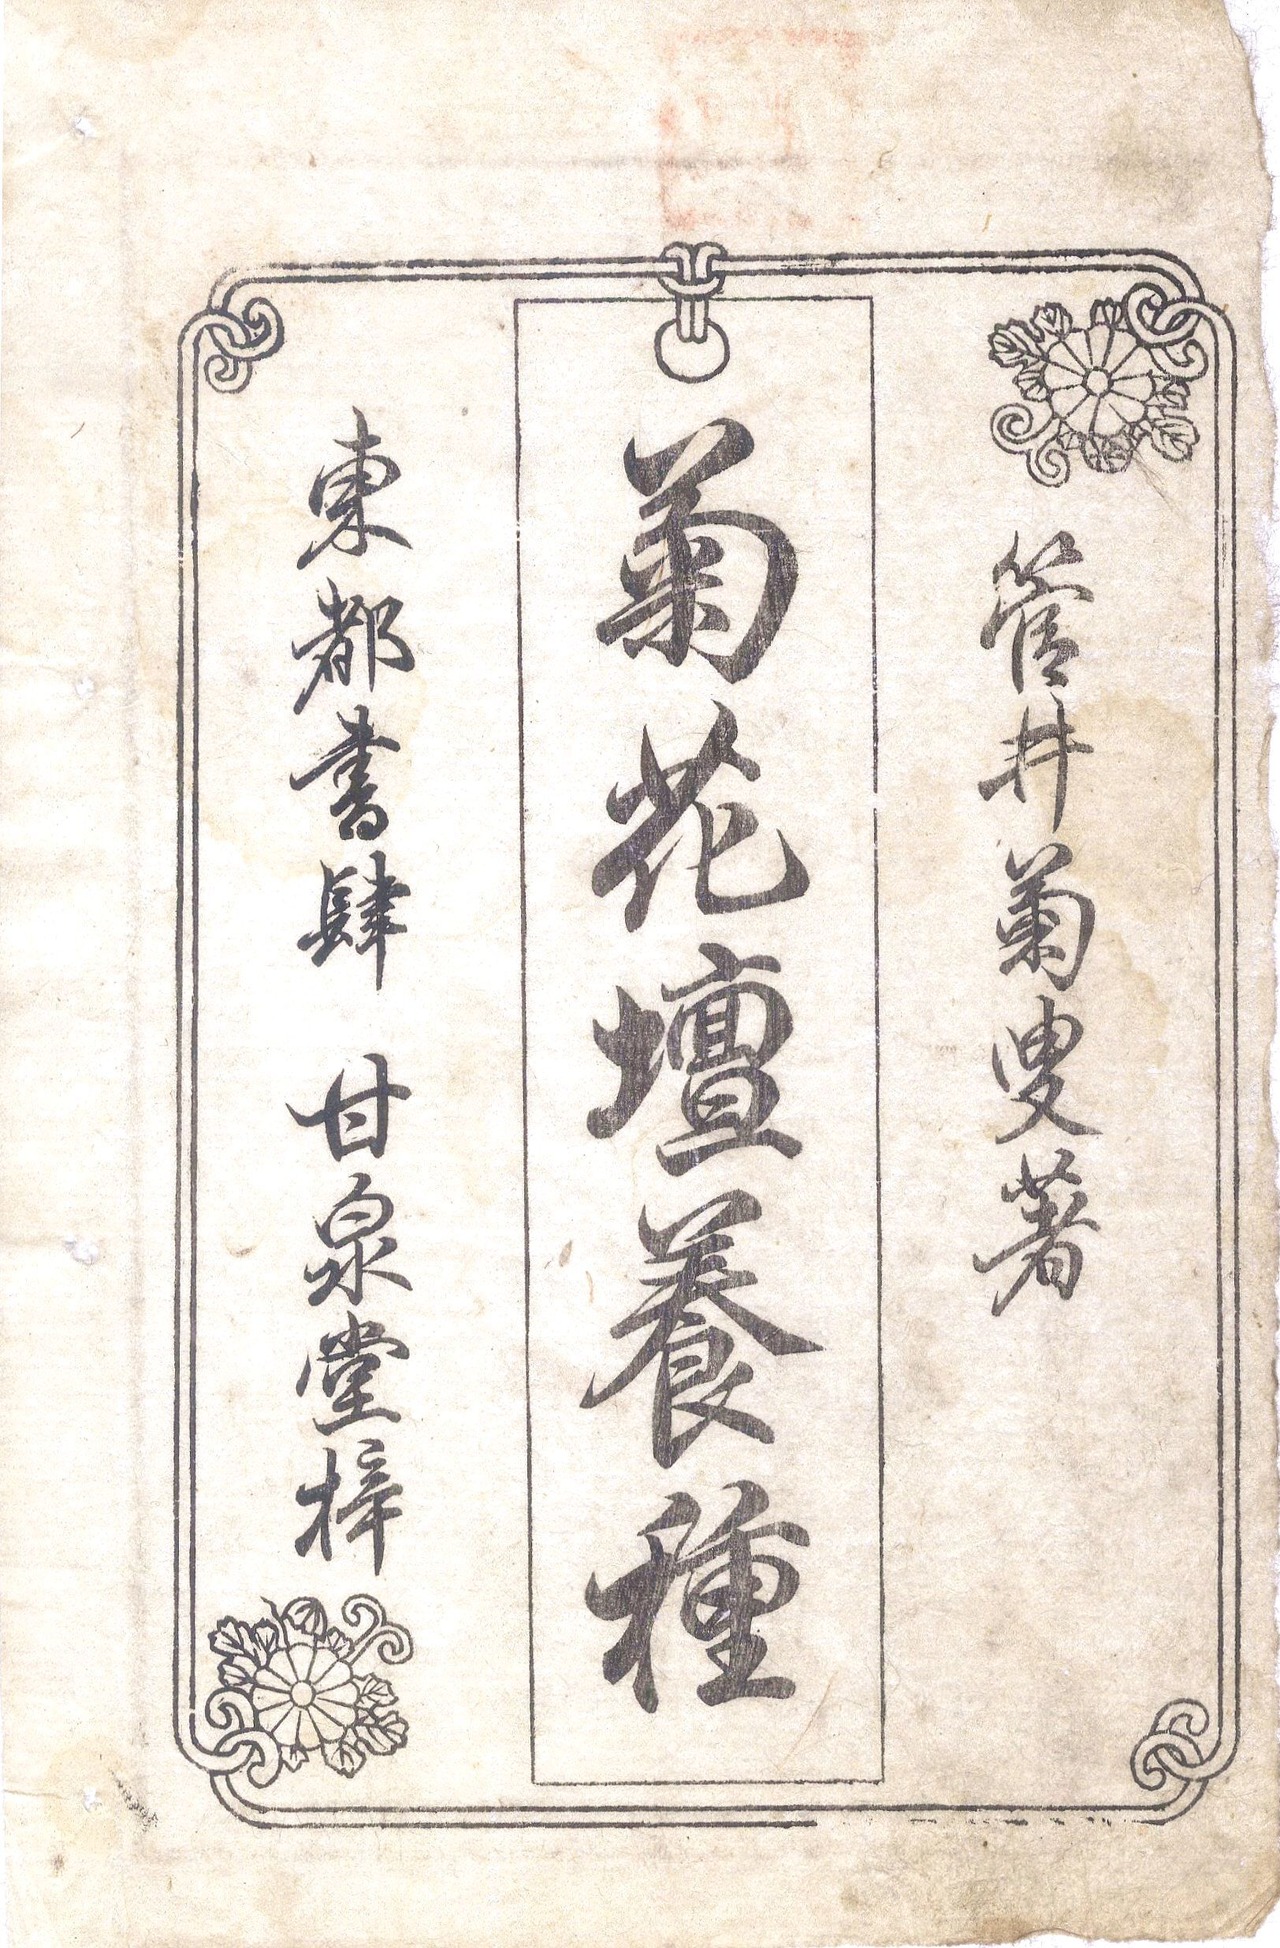 菅井菊叟著
菊花壇養種
東都書肆 甘泉堂梓